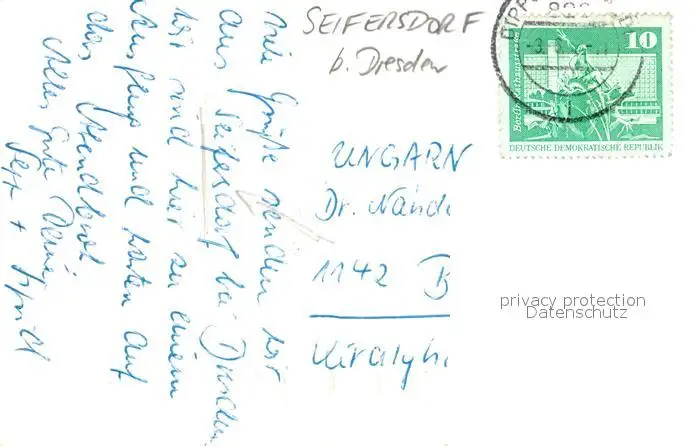 SEIFERSDORF
b. Dresden
Grüße senden wir
aus Seifersdorf bei Dresden
wir sind hier zu einem
Ausflug und warten auf
das Abendbrot
Alles Gute Deine
Sepp +
UNGARN
Dr. Nándo
1142 B
Királyh
10
Berlin, Rathausstraße
DEUTSCHE DEMOKRATISCHE REPUBLIK
DIPP
privacy protection
Datenschutz